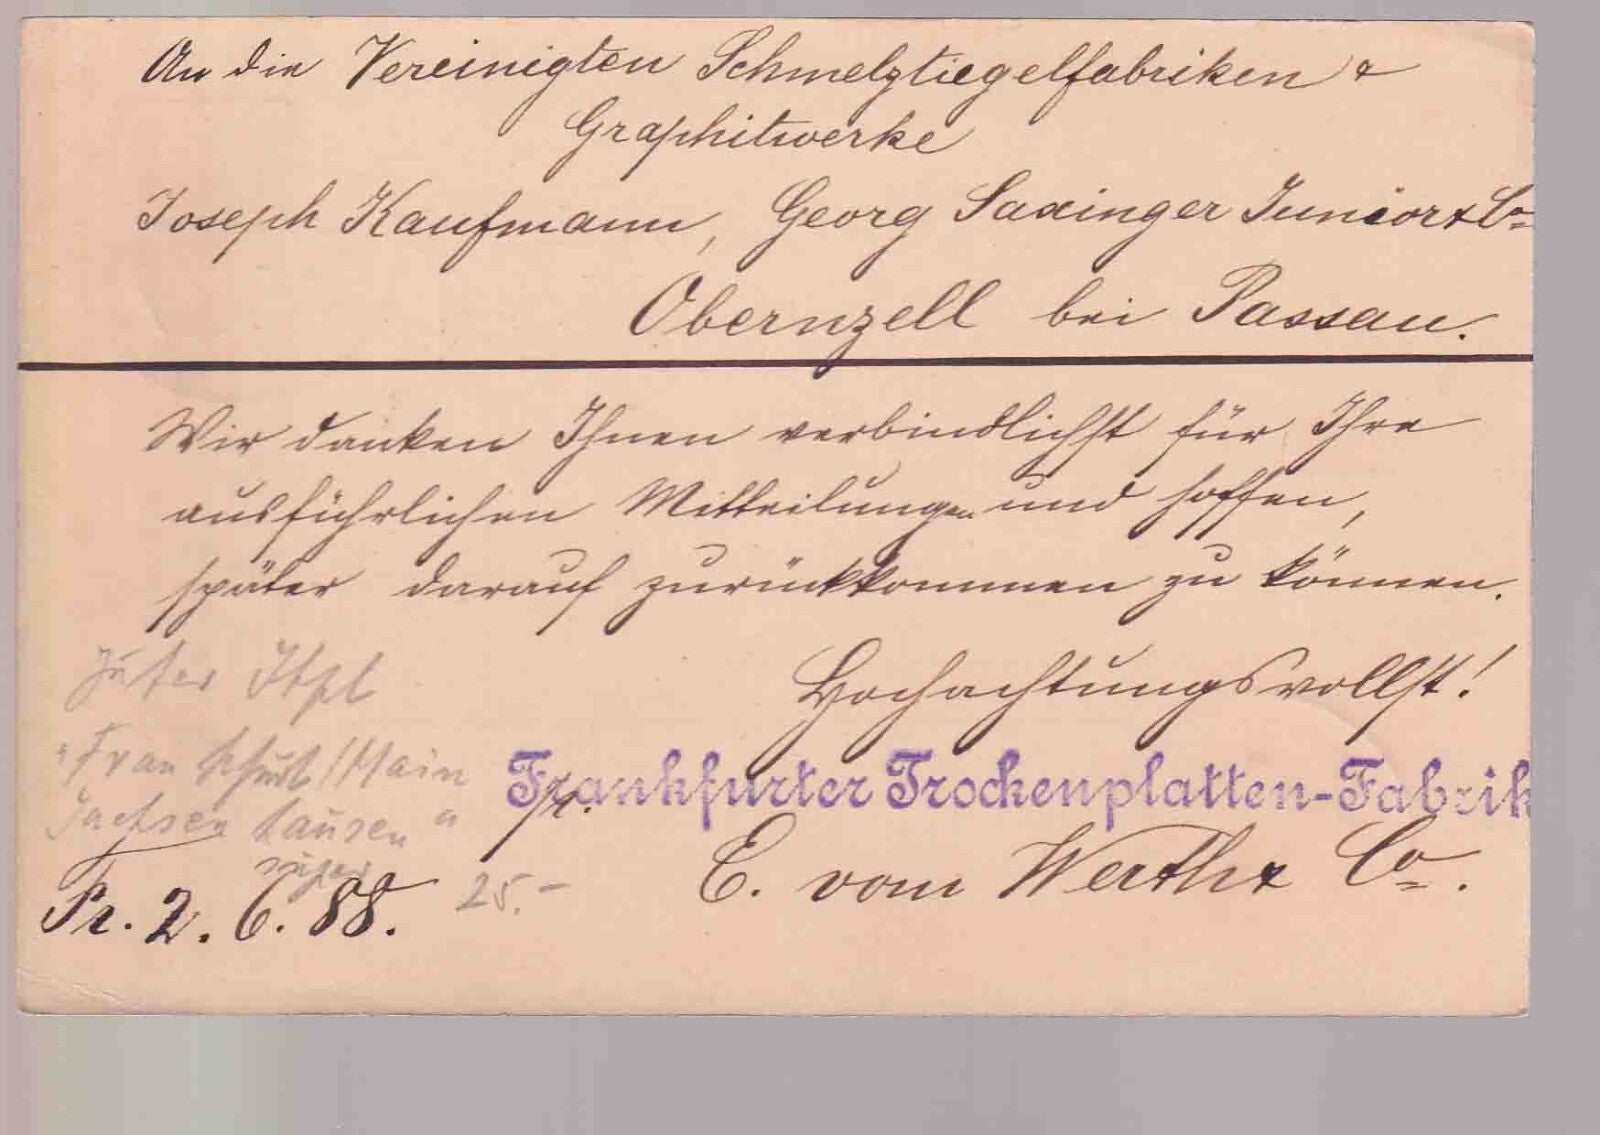 An die Vereinigten Schmelztiegelfabriken &
Graphitwerke
Joseph Kaufmann, Georg Saxinger Junior & Co
Obernzell bei Passau.
Wir danken Ihnen verbindlichst für Ihre
ausführlichen Mitteilungen und hoffen,
später darauf zurückkommen zu können.
Hochachtungsvollst!
Frankfurter Trockenplatten-Fabrik
pr.
E. vom Werth & Co.
guter Stpl
"Frankfurt/Main
Sachsenhausen"
25.-
Fr. 2. 6. 88.